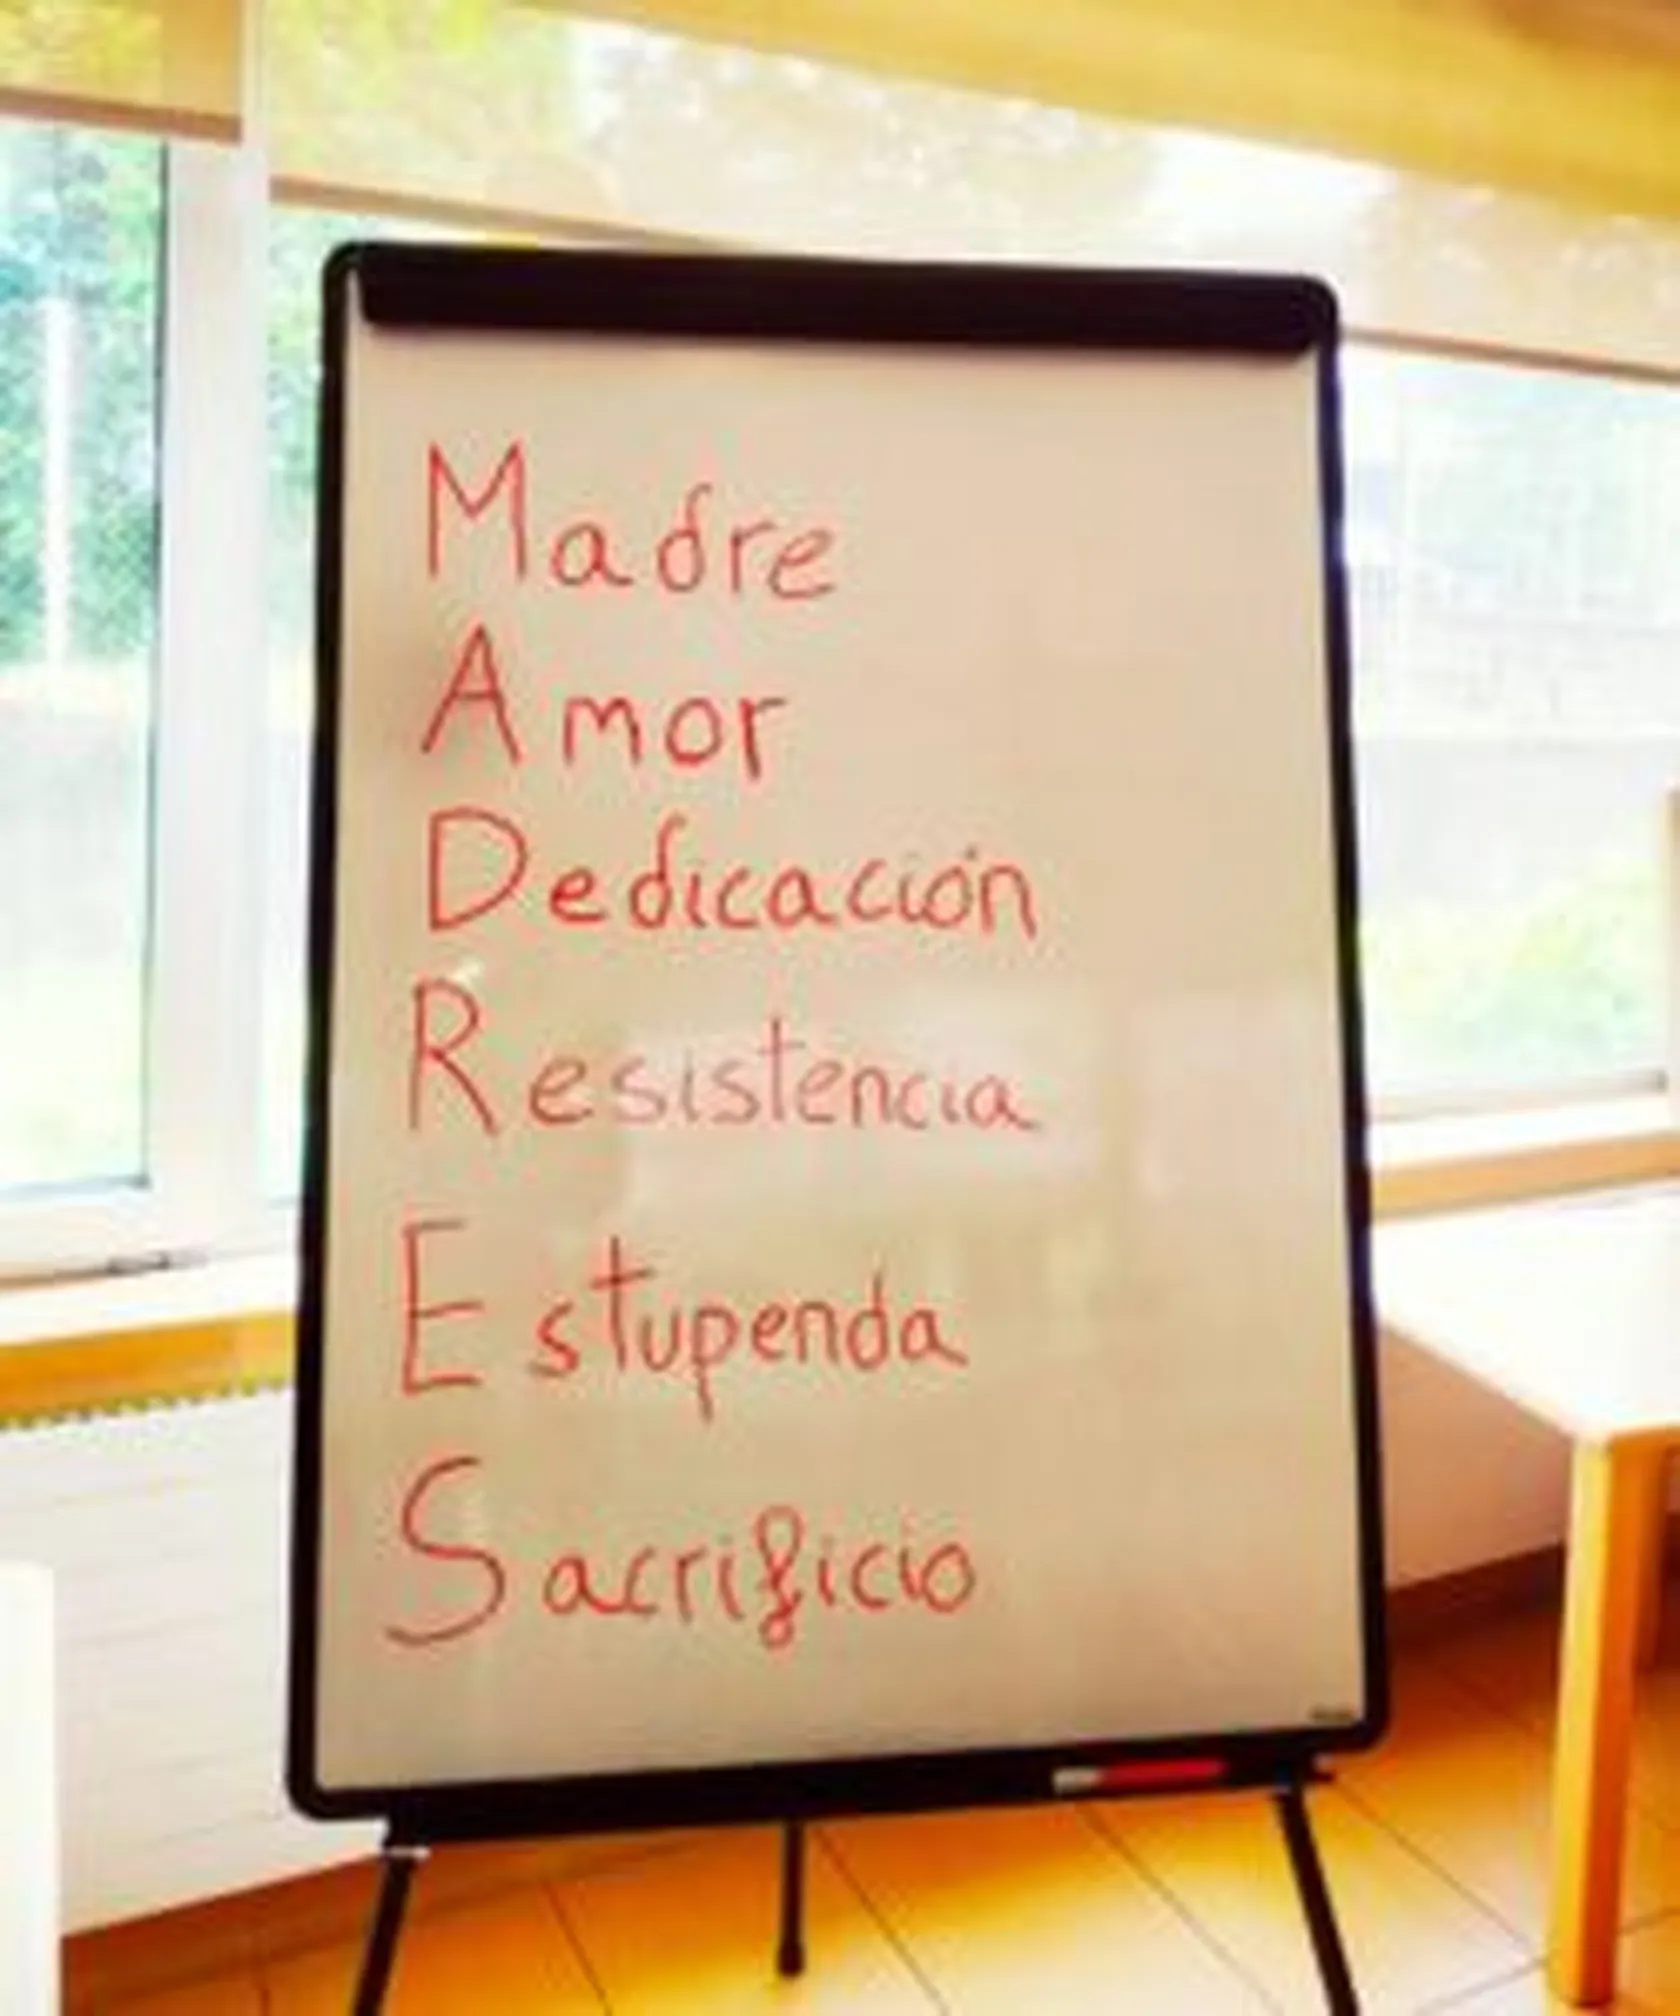 Madre
Amor
Dedicación
Resistencia
Estupenda
Sacrificio